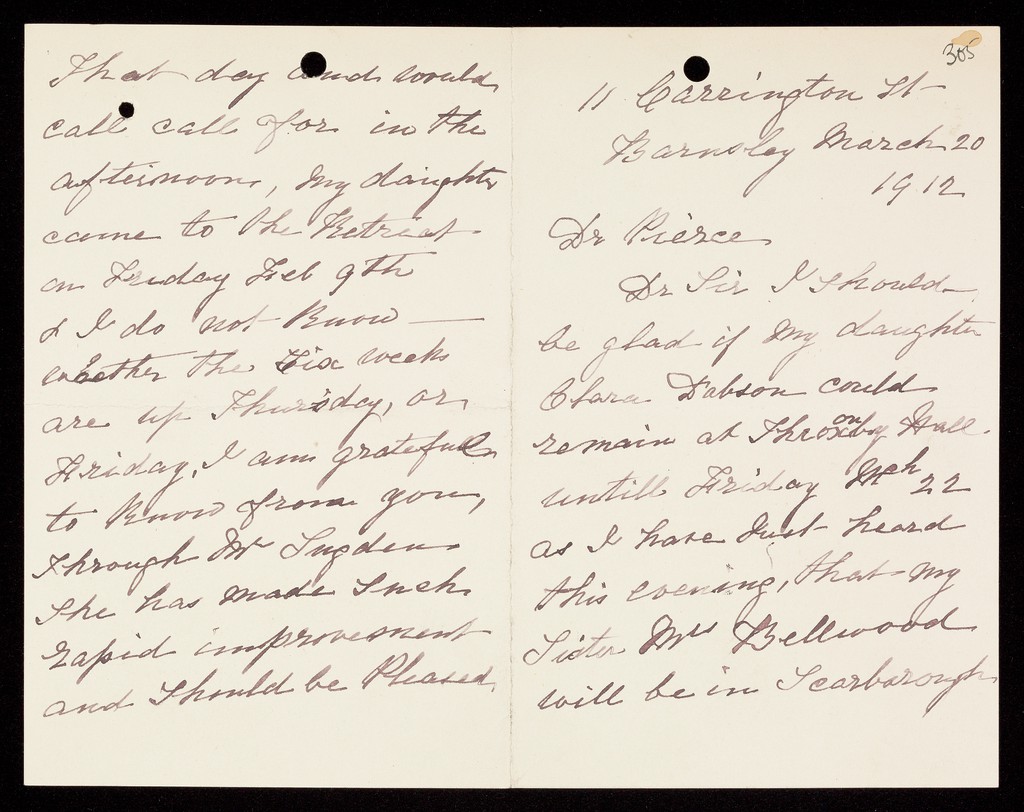 305
11 Carrington St
Barnsley March 20
1912
Dr Pierce
Dr Sir I should
be glad if my daughter
Clara Dabson could
remain at Throxonby Hall
untill Friday Mch 22
as I have Just heard
this evening, that my
Sister Mrs Bellwood
will be in Scarborough
That day and would
call call for in the
afternoon, my daughter
came to the Retreat
on Friday Feb 9th
& I do not Know —
whether the Six weeks
are up Thursday, or
Friday, I am gratefull
to Know from you,
through Mr Sugden
She has made Such
rapid improvement
and Should be Pleased